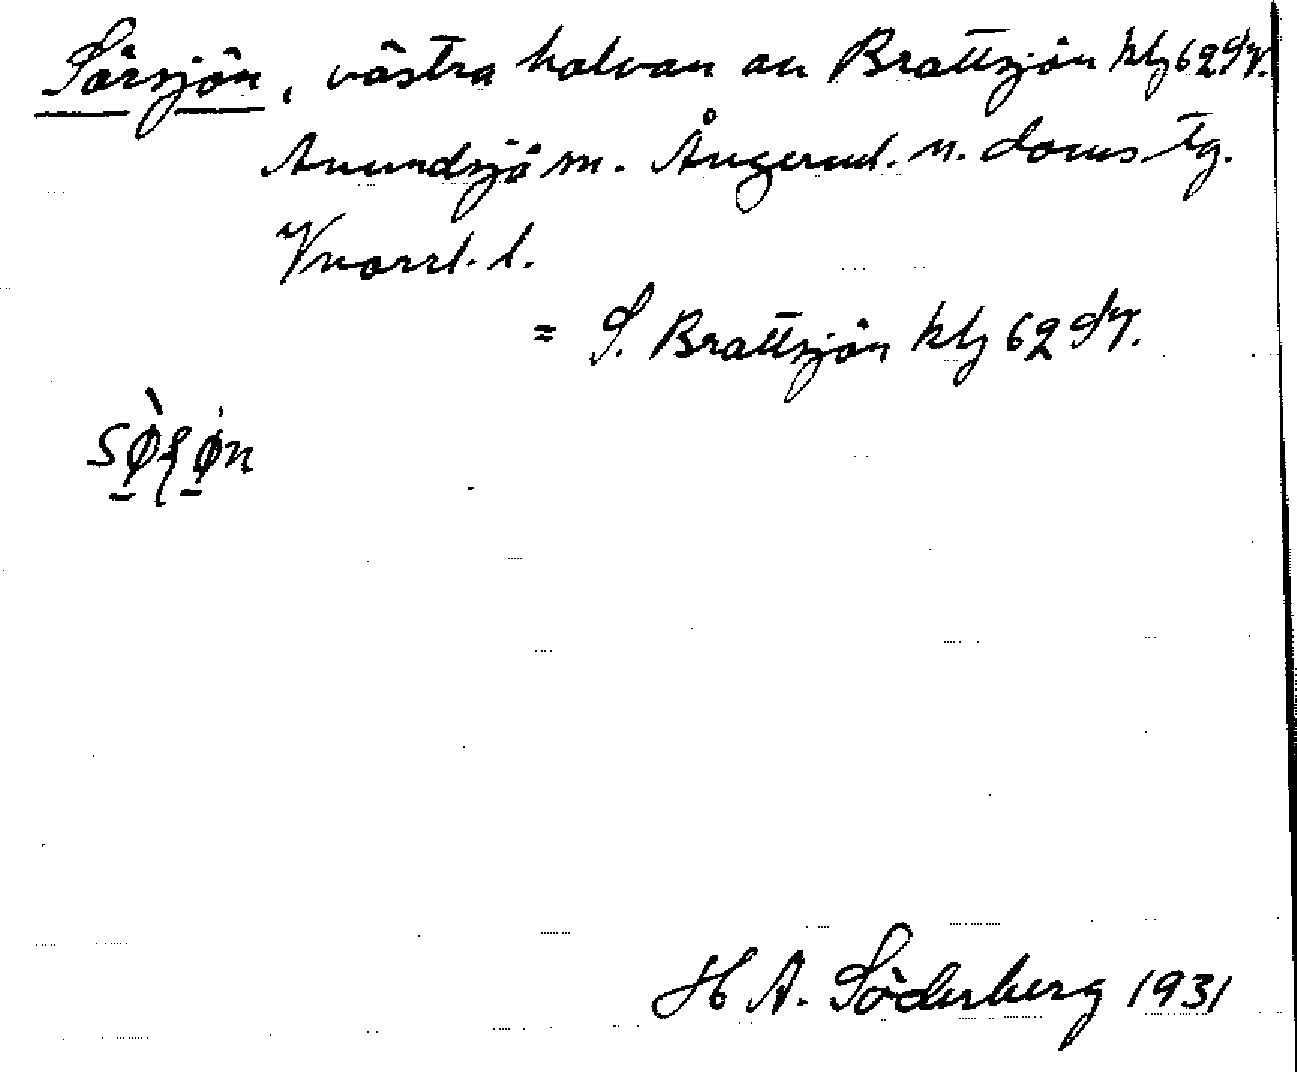 Sörsjön, västra halvan av Brattsjön klj 62 SV.
Anundsjö sn. Ångerml. n. doms tg.
Vnorrl. l.
= S. Brattsjön klj 62 SV.
H A. Söderberg 1931